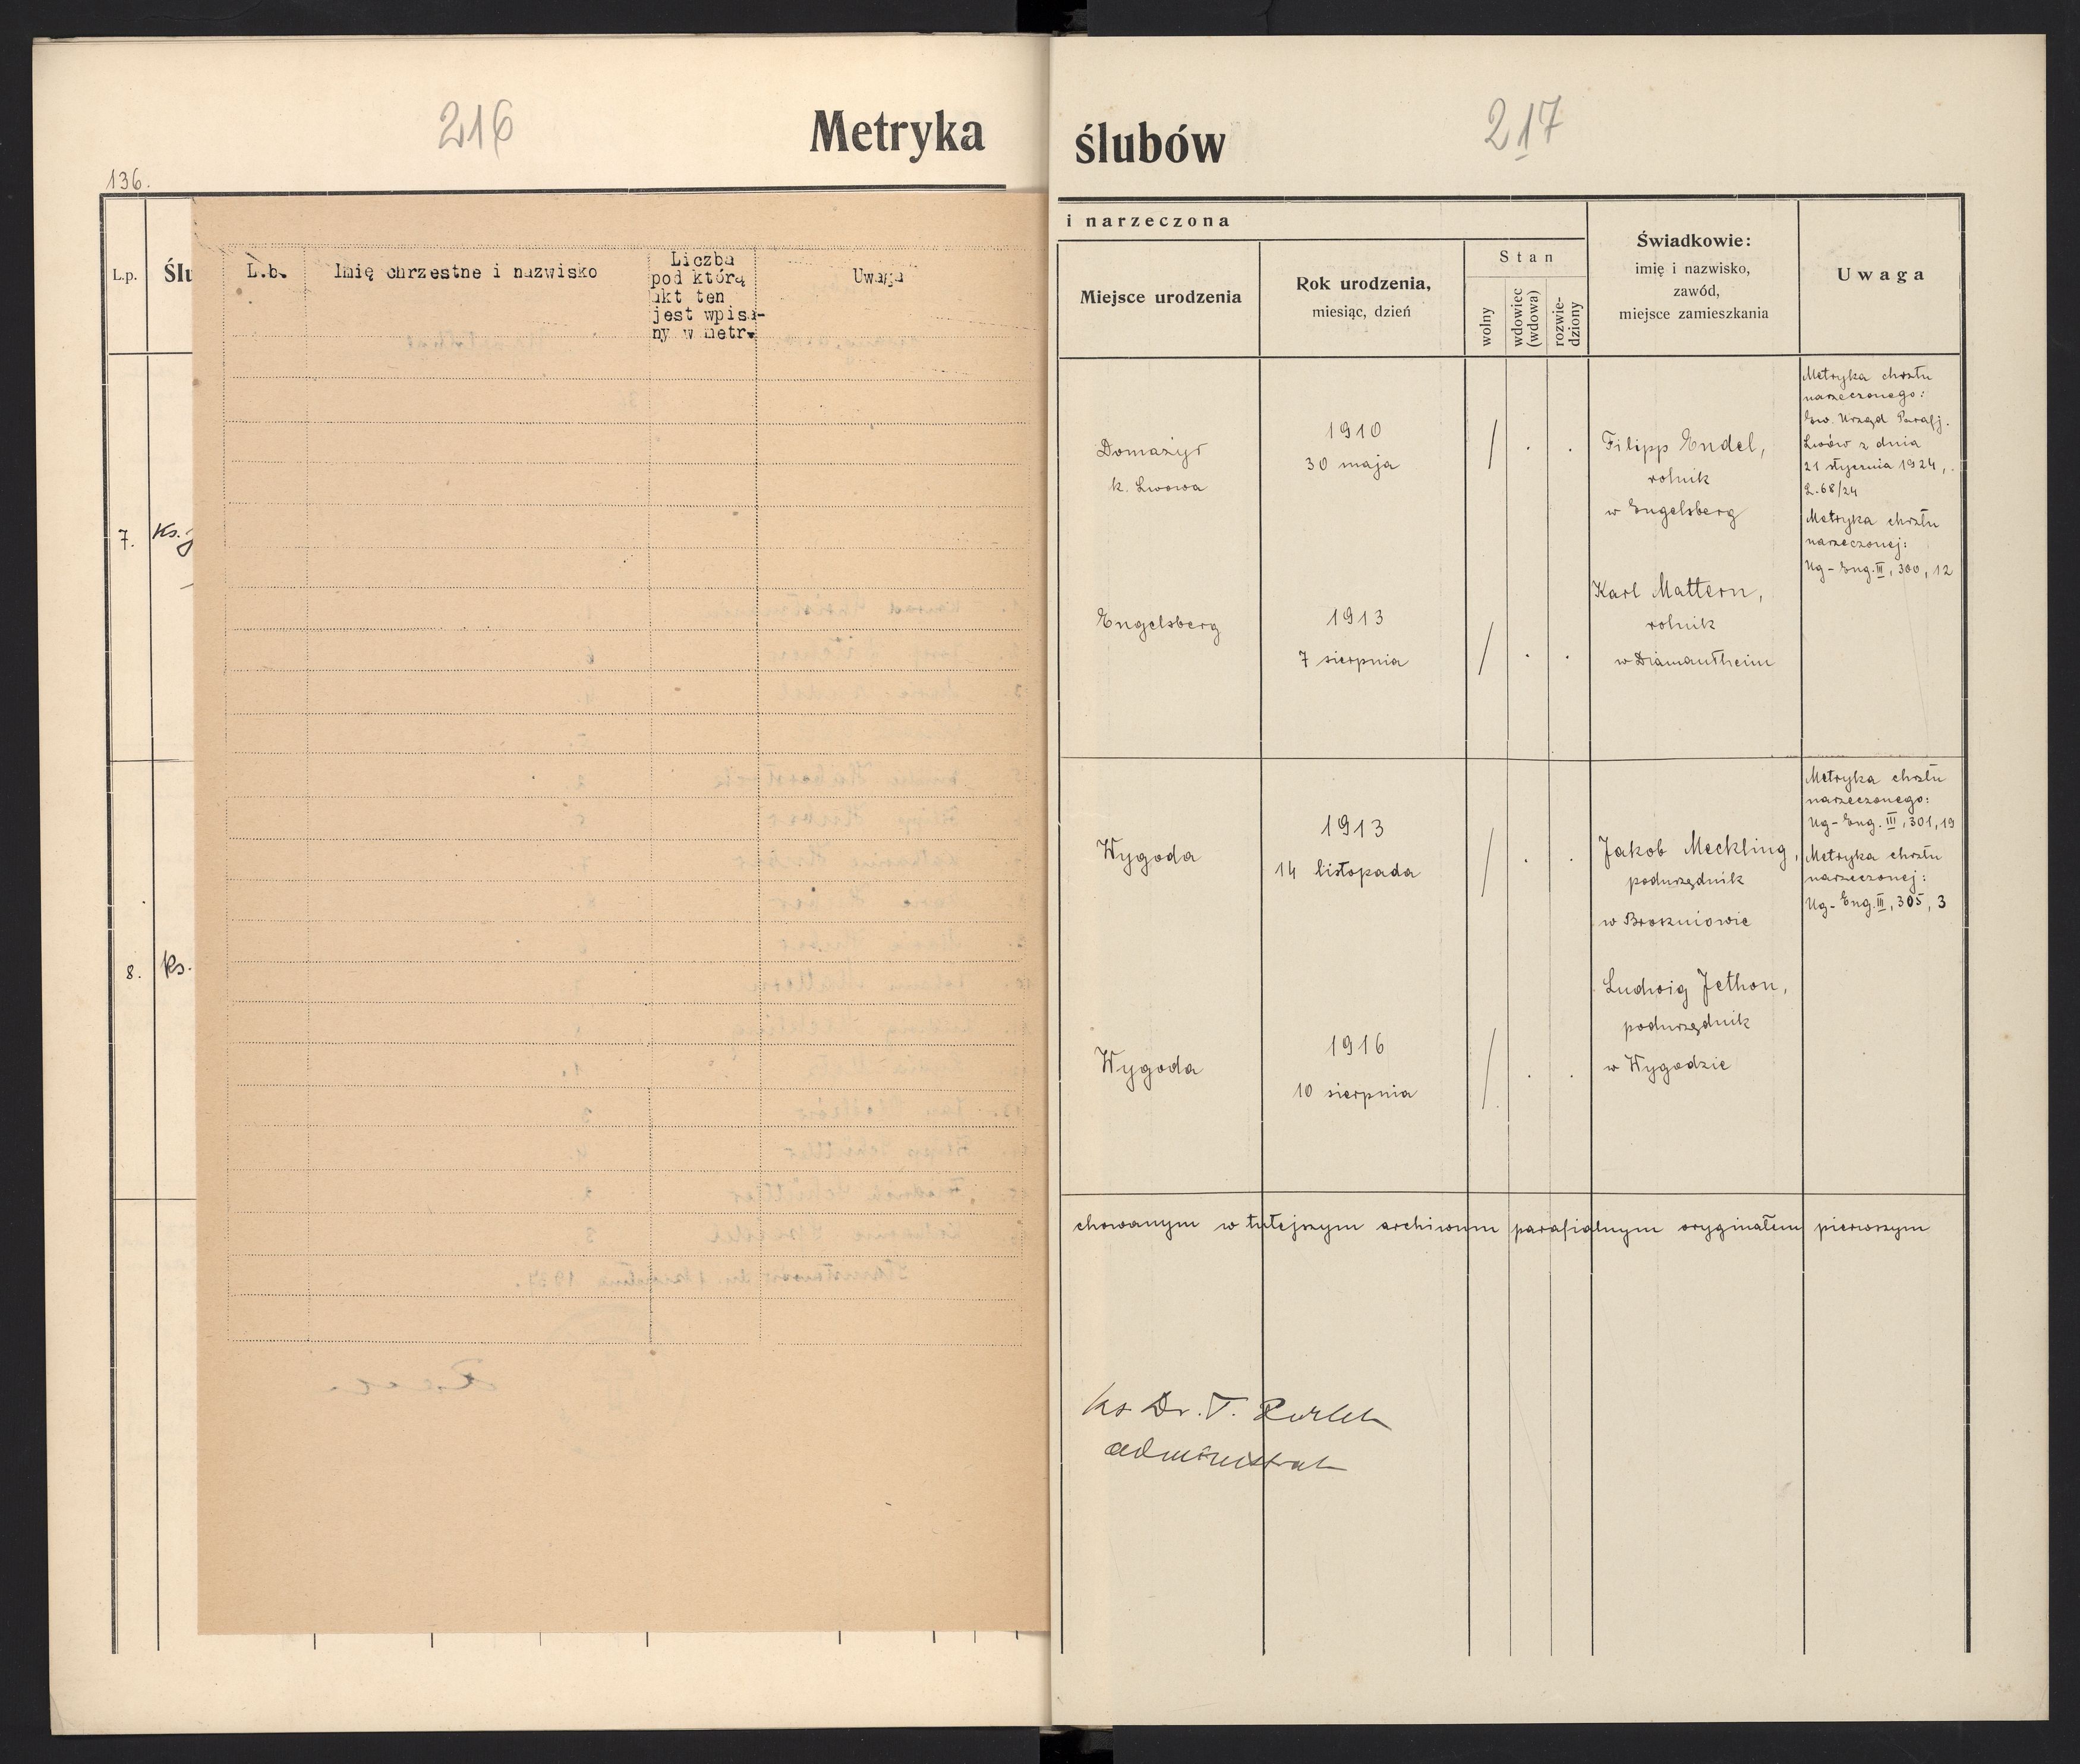 216
Metryka
136.
L.p.
Ślu
7.
Ks. J
8.
Ks.
L.b.
Imię chrzestne i nazwisko
Liczba
pod którą
akt ten
jest wpisa-
ny w metr.
Uwaga
217
ślubów
i narzeczona
Miejsce urodzenia
Rok urodzenia,
miesiąc, dzień
Stan
wolny
wdowiec
(wdowa)
rozwie-
dziony
Świadkowie:
imię i nazwisko,
zawód,
miejsce zamieszkania
Uwaga
Domażyr
k. Lwowa
1910
30 maja
Filipp Endel,
rolnik
w Engelsberg
Metryka chrztu
narzeczonego:
Ew. Urząd Parafj.
Lwów z dnia
21 stycznia 1924,
L. 68/24
Metryka chrztu
narzeczonej:
Ug-Eng. III, 300, 12
Engelsberg
1913
7 sierpnia
Karl Mattern,
rolnik
w Diamantheim
Wygoda
1913
14 listopada
Jakob Meckling,
podurzędnik
w Broszniowie
Metryka chrztu
narzeczonego:
Ug-Eng. III, 301, 19
Metryka chrztu
narzeczonej:
Ug-Eng. III, 305, 3
Wygoda
1916
10 sierpnia
Ludwig Jethon,
podurzędnik
w Wygodzie
chowanym w tutejszym archiwum parafialnym oryginałem pierwszym
Ks Dr. T.
administrat